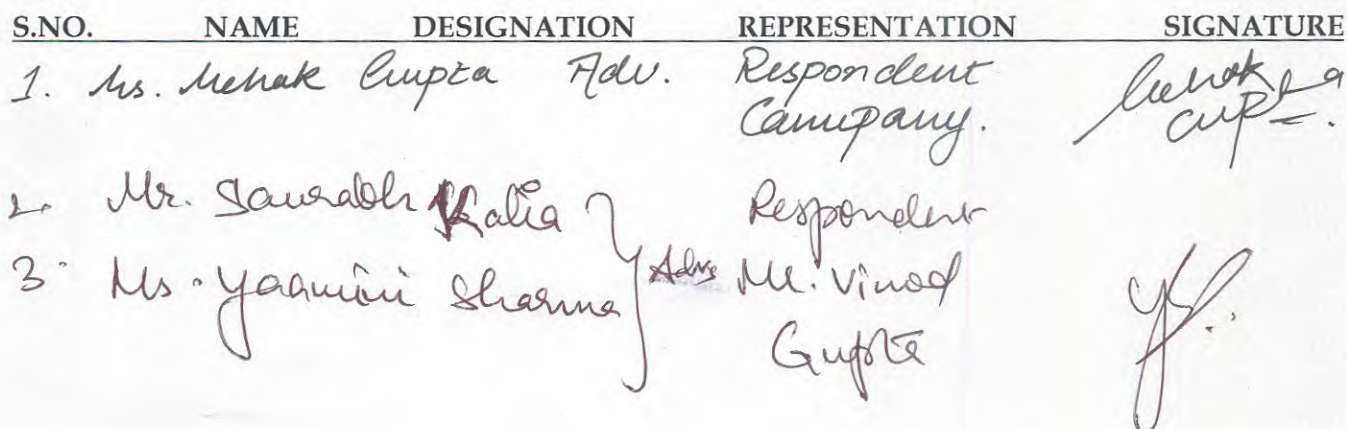 S.NO. NAME DESIGNATION REPRESENTATION SIGNATURE
1. Ms. Mehak Gupta Adv. Respondent Company. Mehak Gupta
2. Mr. Saurabh Kalia Respondent
3. Ms. Yaamini Sharma Advs Mr. Vinod Gupta